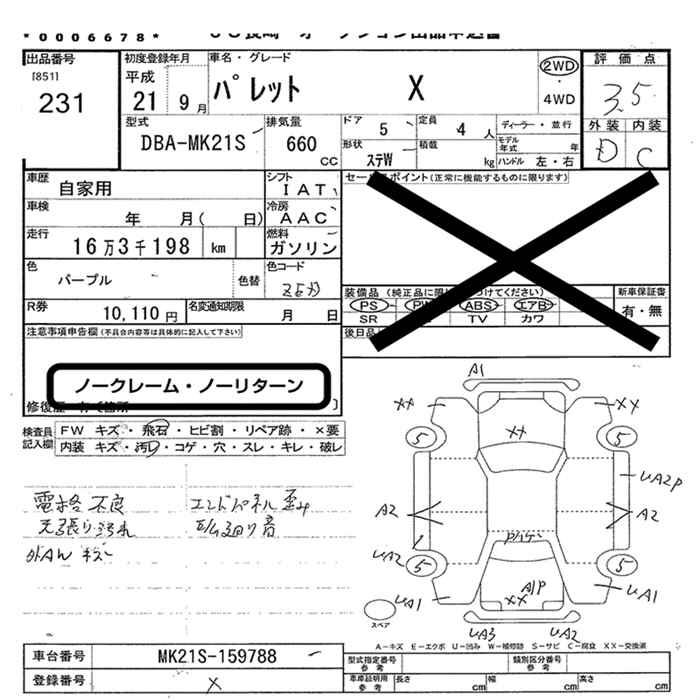 *0006678*
出品番号
[851]
231
初度登録年月
平成
21 9月
車名・グレード
パレット X
2WD
・
4WD
評価点
3.5
外装 内装
D C
型式
DBA-MK21S
排気量
660
cc
ドア 5
定員 4人
ディーラー・並行
モデル年式 年
形状 ステW
積載 kg
ハンドル 左・右
車歴 自家用
シフト IAT
車検 年 月( 日)
冷房 AAC
走行 16万3千198 km
燃料 ガソリン
色 パープル 色替
色コード
R券 10,110円
名変通知期限 月 日
セールスポイント(正常に機能するものに限ります)
装備品
PS PW ABS エアB
SR TV カワ
新車保証書
有・無
後日品
注意事項申告欄(不具合内容等は具体的に記入して下さい)
ノークレーム・ノーリターン
検査員記入欄
FW キズ・飛石・ヒビ割・リペア跡・×要
内装 キズ・汚レ・コゲ・穴・スレ・キレ・破レ
電格不良 エンドパネル歪み
天張り汚れ
外AW キズ
A1
XX XX
5 XX 5
UA2P
A2 A2
UA2
5 5
A1P
UA1 XX UA1
スペア
UA3 UA2
A-キズ E-エクボ U-凹み W-補修跡 S-サビ C-腐食 XX-交換済
車台番号 MK21S-159788
登録番号 X
型式指定番号 参考
類別区分番号 参考
車庫証明用 参考
長さ cm
幅 cm
高さ cm